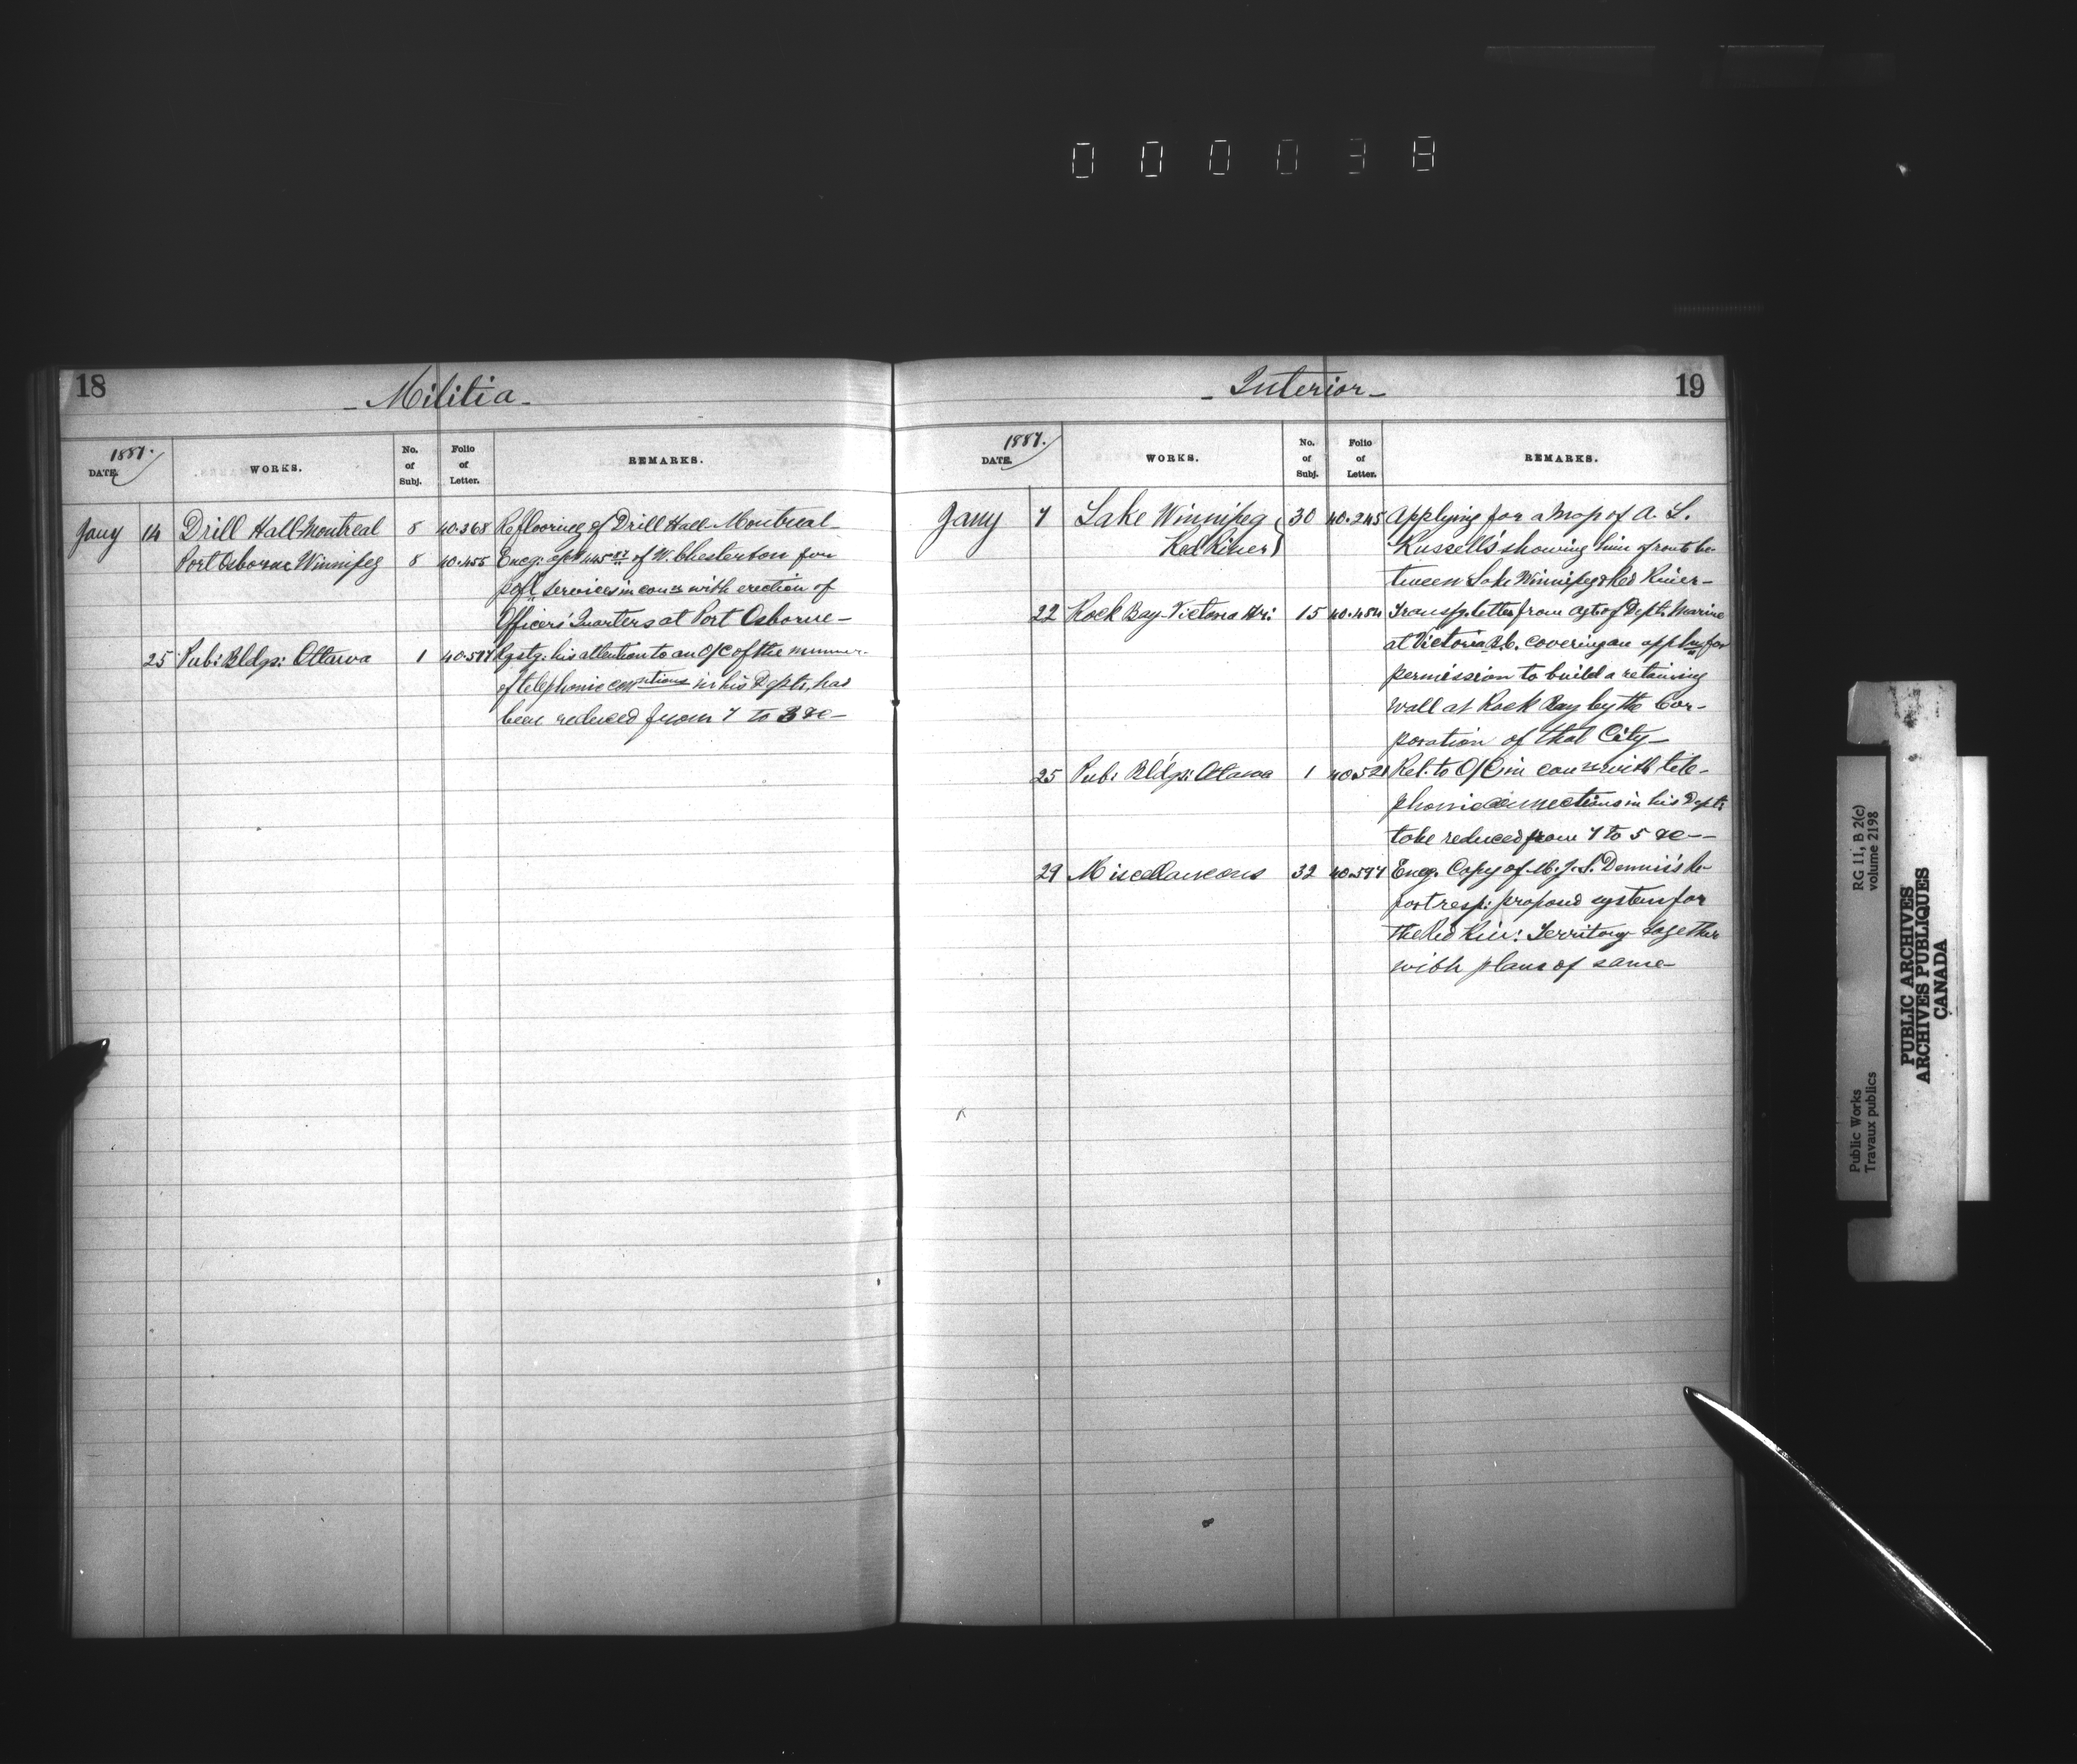 000038
18
- Militia -
1887.
DATE. WORKS. No. of Subj. Folio of Letter. REMARKS.
Jany 14 Drill Hall Montreal 8 40.368 Reflooring of Drill Hall Montreal -
Port Osborne Winnipeg 8 40.455 Encg. of W. Chesterton for
services in with erection of
Officers' Quarters at Port Osborne -
25 Pub: Bldgs: Ottawa 1 his attention to an O/C of the
of telephonic in his Dept. has
been reduced from 7 to 3 &c -
- Interior -
19
1887.
DATE. WORKS. No. of Subj. Folio of Letter. REMARKS.
Jany 7 Lake Winnipeg 30 40.245 Applying for a Map of A. L.
Red River Russell's showing line of route be-
tween Lake Winnipeg & Red River -
22 Rock Bay - Victoria Hr: 15 40.454 letter from agt. of Dept. Marine
at Victoria B.C. covering an for
permission to build a retaining
wall at Rock Bay by the Cor-
poration of that City -
25 Pub: Bldgs: Ottawa 1 40.528 Rel. to O/C in with tele-
phonic connections in his Dept.
to be reduced from 7 to 5 &c -
29 Miscellaneous 32 40.597 Encg. Copy of J. S. Dennis's Re-
port resp: proposed system for
the Red Riv: Territory together
with plans of same -
Public Works
Travaux publics
RG 11, B 2(c)
volume 2198
PUBLIC ARCHIVES
ARCHIVES PUBLIQUES
CANADA